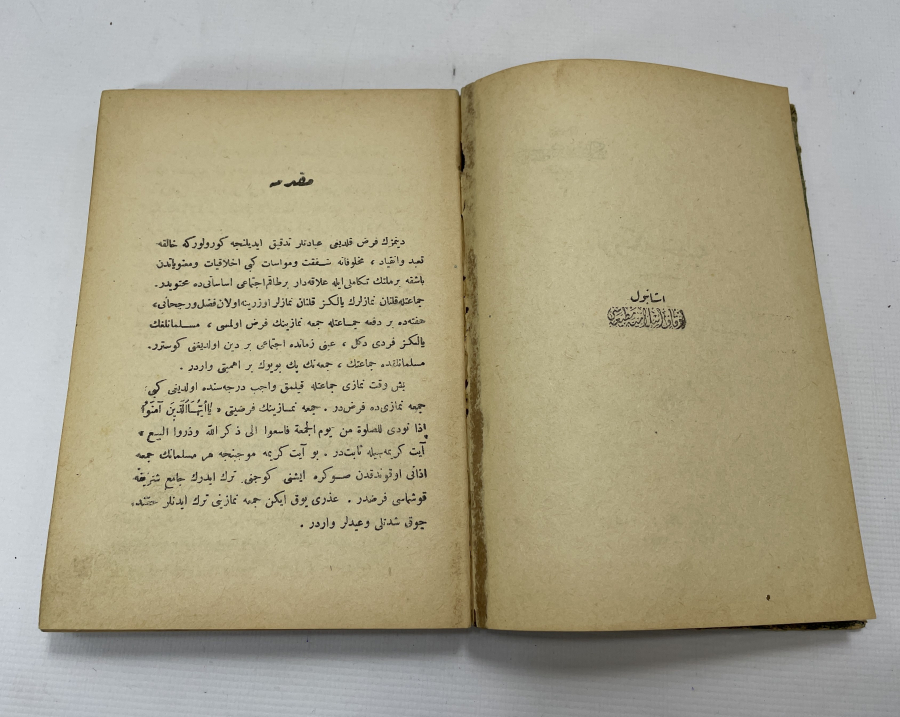 استانبول
اوقاف اسلامیه مطبعه‌سی
مقدمه
دینمزك فرض قلدیغی عبادتلر تدقیق ایدیلنجه كورولوركه خالقه
تعبد وانقیاد ، مخلوقاته شفقت ومواسات كبی اخلاقیات ومعنویاتدن
باشقه بر ملتك تكاملی ایله علاقه‌دار بر طاقم اجتماعی اساساتی ده محتویدر.
جماعتله قلنان نمازلرك یالكز قلنان نمازلر اوزرینه اولان فضل ورجحانی ،
هفته‌ده بر دفعه جماعتله جمعه نمازینك فرض اولمسی ، مسلمانلغك
یالكز فردی دكل ، عینی زمانده اجتماعی بر دین اولدیغنی كوسترر.
مسلمانلقده جماعتك ، جمعه‌نك پك بویوك بر اهمیتی واردر .
بش وقت نمازی جماعتله قیلمق واجب درجه‌سنده اولدیغی كبی
جمعه نمازی ده فرض‌در . جمعه نمازینك فرضیتی « یَا أَیُّهَا الَّذِینَ آمَنُوا
إذا نودی للصلوة من یوم الجمعة فاسعوا الی ذكر الله وذروا البیع »
آیت كریمه‌سیله ثابت‌در . بو آیت كریمه موجبنجه هر مسلمانك جمعه
اذانی اوقوندقدن صوكره ایشنی كوجنی ترك ایدرك جامع شریفه
قوشماسی فرضدر . عذری یوق ایكن جمعه نمازینی ترك ایدنلر حقنده
چوق شدتلی وعیدلر واردر .